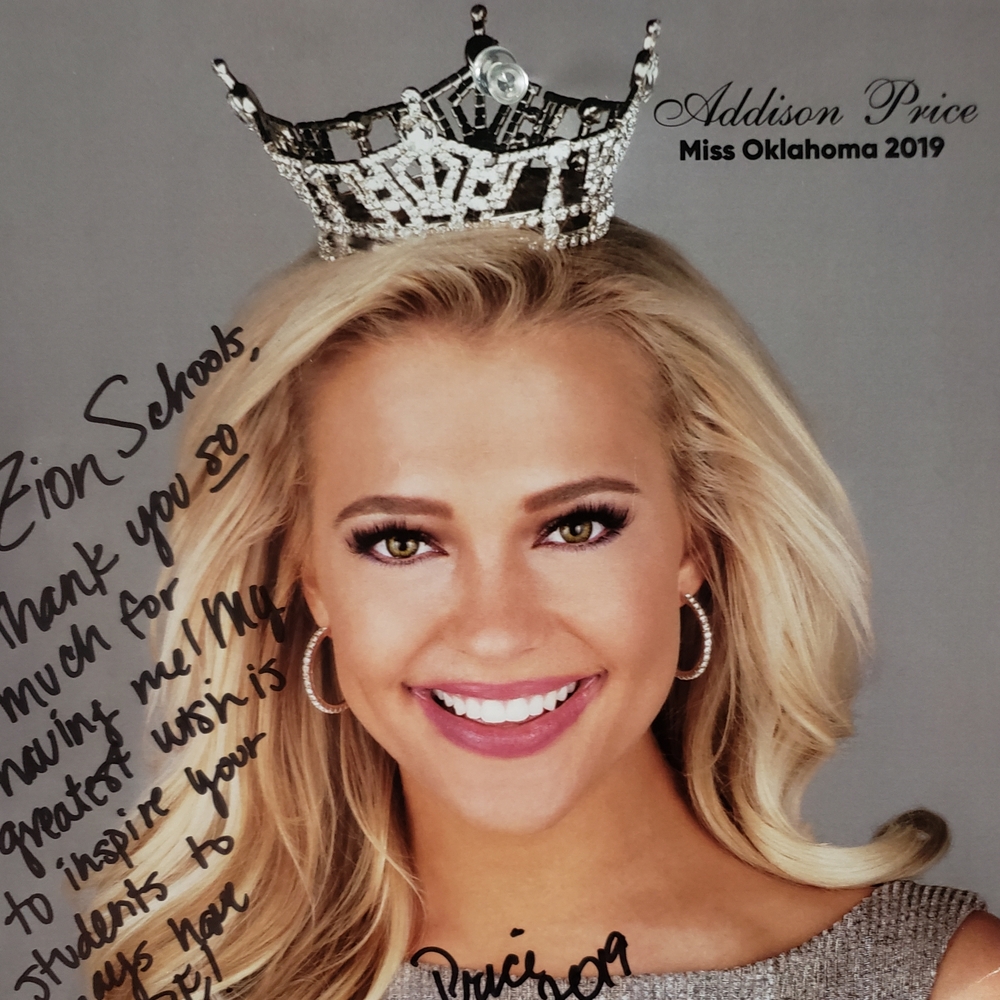 Addison Price
Miss Oklahoma 2019
Zion Schools,
Thank you so
much for
having me! My
greatest wish is
to inspire your
students to
have
Price
2019